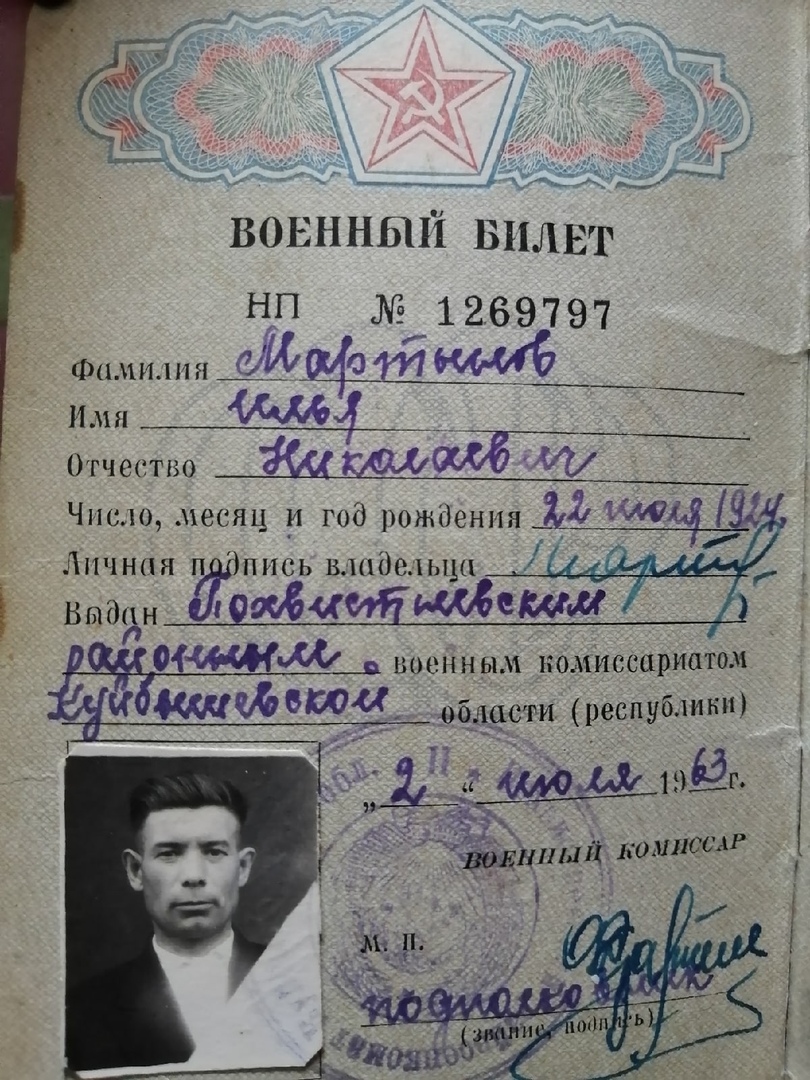 ВОЕННЫЙ БИЛЕТ
НП № 1269797
Фамилия Мартынов
Имя Илья
Отчество Николаевич
Число, месяц и год рождения 22 июля 1924
Личная подпись владельца
Выдан Похвистневским
районным военным комиссариатом
Куйбышевской области (республики)
„2“ июля 1963 г.
ВОЕННЫЙ КОМИССАР
М. П.
подполковник
(звание, подпись)
обл.